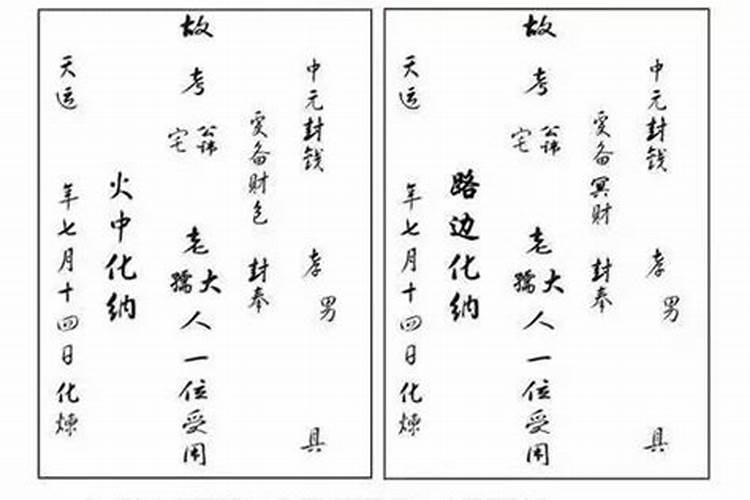 中元封钱 孝男 具
爰备财包 封奉
故考 公讳 宅 老大 孺人一位受用
火中化纳
天运 年七月十四日化煉
中元封钱 孝男 具
爰备冥财 封奉
故考 公讳 宅 老大 孺人一位受用
路边化纳
天运 年七月十四日化煉